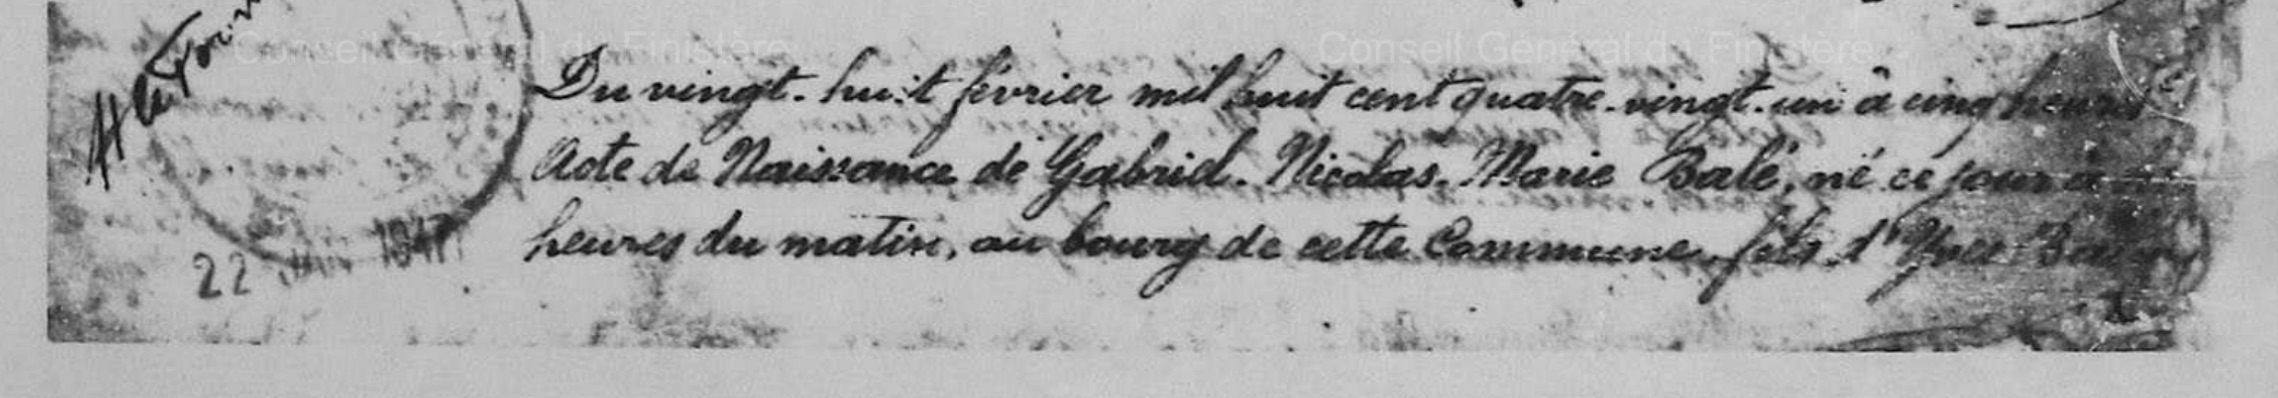 Conseil Général du Finistère
Conseil Général du Finistère
Du vingt-huit février mil huit cent quatre-vingt-un à cinq heures
Acte de Naissance de Gabriel. Nicolas. Marie Balé, né ce jour à
heures du matin, au bourg de cette Commune, fils d'Yves
22 1947